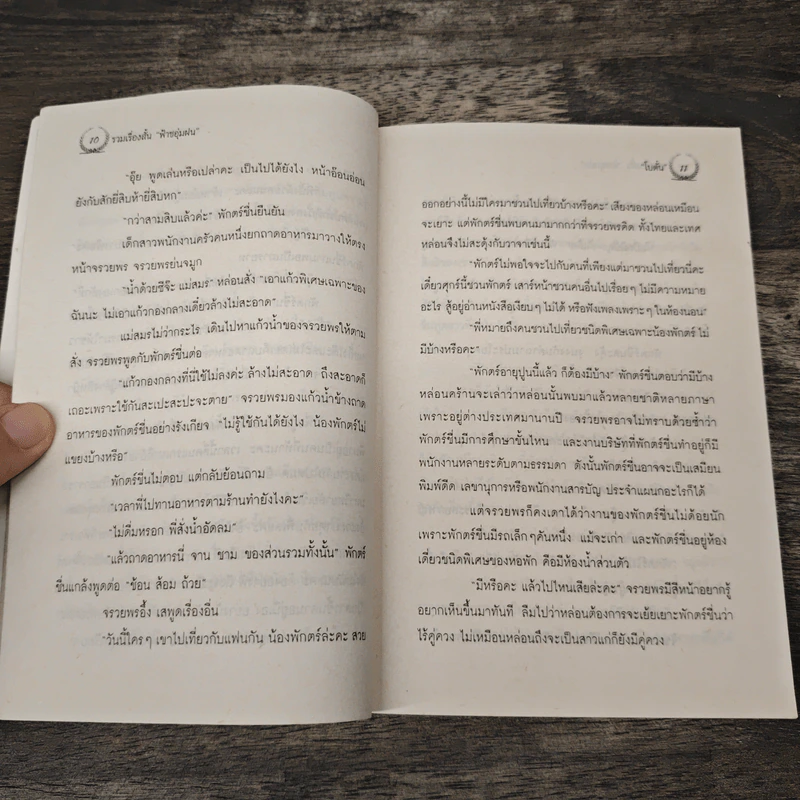 10 รวมเรื่องสั้น "ฟ้าชอุ่มฝน"
"อุ๊ย พูดเล่นหรือเปล่าคะ เป็นไปได้ยังไง หน้าอ๊อนอ่อน
ยังกับสักยี่สิบห้ายี่สิบหก"
"กว่าสามสิบแล้วค่ะ" พักตร์ชื่นยืนยัน
เด็กสาวพนักงานครัวคนหนึ่งยกถาดอาหารมาวางให้ตรง
หน้าจรวยพร จรวยพรย่นจมูก
"น้ำด้วยซีจ๊ะ แม่สมร" หล่อนสั่ง "เอาแก้วพิเศษเฉพาะของ
ฉันนะ ไม่เอาแก้วกองกลางเดี๋ยวล้างไม่สะอาด"
แม่สมรไม่ว่ากระไร เดินไปหาแก้วน้ำของจรวยพรให้ตาม
สั่ง จรวยพรพูดกับพักตร์ชื่นต่อ
"แก้วกองกลางที่นี่ใช้ไม่ลงค่ะ ล้างไม่สะอาด ถึงสะอาดก็
เถอะเพราะใช้กันสะเปะสะปะจะตาย" จรวยพรมองแก้วน้ำข้างถาด
อาหารของพักตร์ชื่นอย่างรังเกียจ "ไม่รู้ใช้กันได้ยังไง น้องพักตร์ไม่
แขยงบ้างหรือ"
พักตร์ชื่นไม่ตอบ แต่กลับย้อนถาม
"เวลาพี่ไปทานอาหารตามร้านทำยังไงคะ"
"ไม่ดื่มหรอก พี่สั่งน้ำอัดลม"
"แล้วถาดอาหารนี่ จาน ชาม ของส่วนรวมทั้งนั้น" พักตร์
ชื่นแกล้งพูดต่อ "ช้อน ส้อม ถ้วย"
จรวยพรอึ้ง เสพูดเรื่องอื่น
"วันนี้ใครๆ เขาไปเที่ยวกับแฟนกัน น้องพักตร์ล่ะคะ สวย
"โบตั๋น" 11
ออกอย่างนี้ไม่มีใครมาชวนไปเที่ยวบ้างหรือคะ" เสียงของหล่อนเหมือน
จะเยาะ แต่พักตร์ชื่นพบคนมามากกว่าที่จรวยพรคิด ทั้งไทยและเทศ
หล่อนจึงไม่สะดุ้งกับวาจาเช่นนี้
"พักตร์ไม่พอใจจะไปกับคนที่เพียงแต่มาชวนไปเที่ยวนี่คะ
เดี๋ยวศุกร์นี้ชวนพักตร์ เสาร์หน้าชวนคนอื่นไปเรื่อยๆ ไม่มีความหมาย
อะไร สู้อยู่อ่านหนังสือเงียบๆ ไม่ได้ หรือฟังเพลงเพราะๆ ในห้องนอน"
"พี่หมายถึงคนชวนไปเที่ยวชนิดพิเศษเฉพาะน้องพักตร์ ไม่
มีบ้างหรือคะ"
"พักตร์อายุปูนนี้แล้ว ก็ต้องมีบ้าง" พักตร์ชื่นตอบว่ามีบ้าง
หล่อนคร้านจะเล่าว่าหล่อนนั้นพบมาแล้วหลายชาติหลายภาษา
เพราะอยู่ต่างประเทศมานานปี จรวยพรอาจไม่ทราบด้วยซ้ำว่า
พักตร์ชื่นมีการศึกษาขั้นไหน และงานบริษัทที่พักตร์ชื่นทำอยู่ก็มี
พนักงานหลายระดับตามธรรมดา ดังนั้นพักตร์ชื่นอาจจะเป็นเสมียน
พิมพ์ดีด เลขานุการหรือพนักงานสารบัญ ประจำแผนกอะไรก็ได้
แต่จรวยพรก็คงเดาได้ว่างานของพักตร์ชื่นไม่ด้อยนัก
เพราะพักตร์ชื่นมีรถเล็กๆ คันหนึ่ง แม้จะเก่า และพักตร์ชื่นอยู่ห้อง
เดี่ยวชนิดพิเศษของหอพัก คือมีห้องน้ำส่วนตัว
"มีหรือคะ แล้วไปไหนเสียล่ะคะ" จรวยพรมีสีหน้าอยากรู้
อยากเห็นขึ้นมาทันที ลืมไปว่าหล่อนต้องการจะเย้ยเยาะพักตร์ชื่นว่า
ไร้คู่ควง ไม่เหมือนหล่อนถึงจะเป็นสาวแก่ก็ยังมีคู่ควง